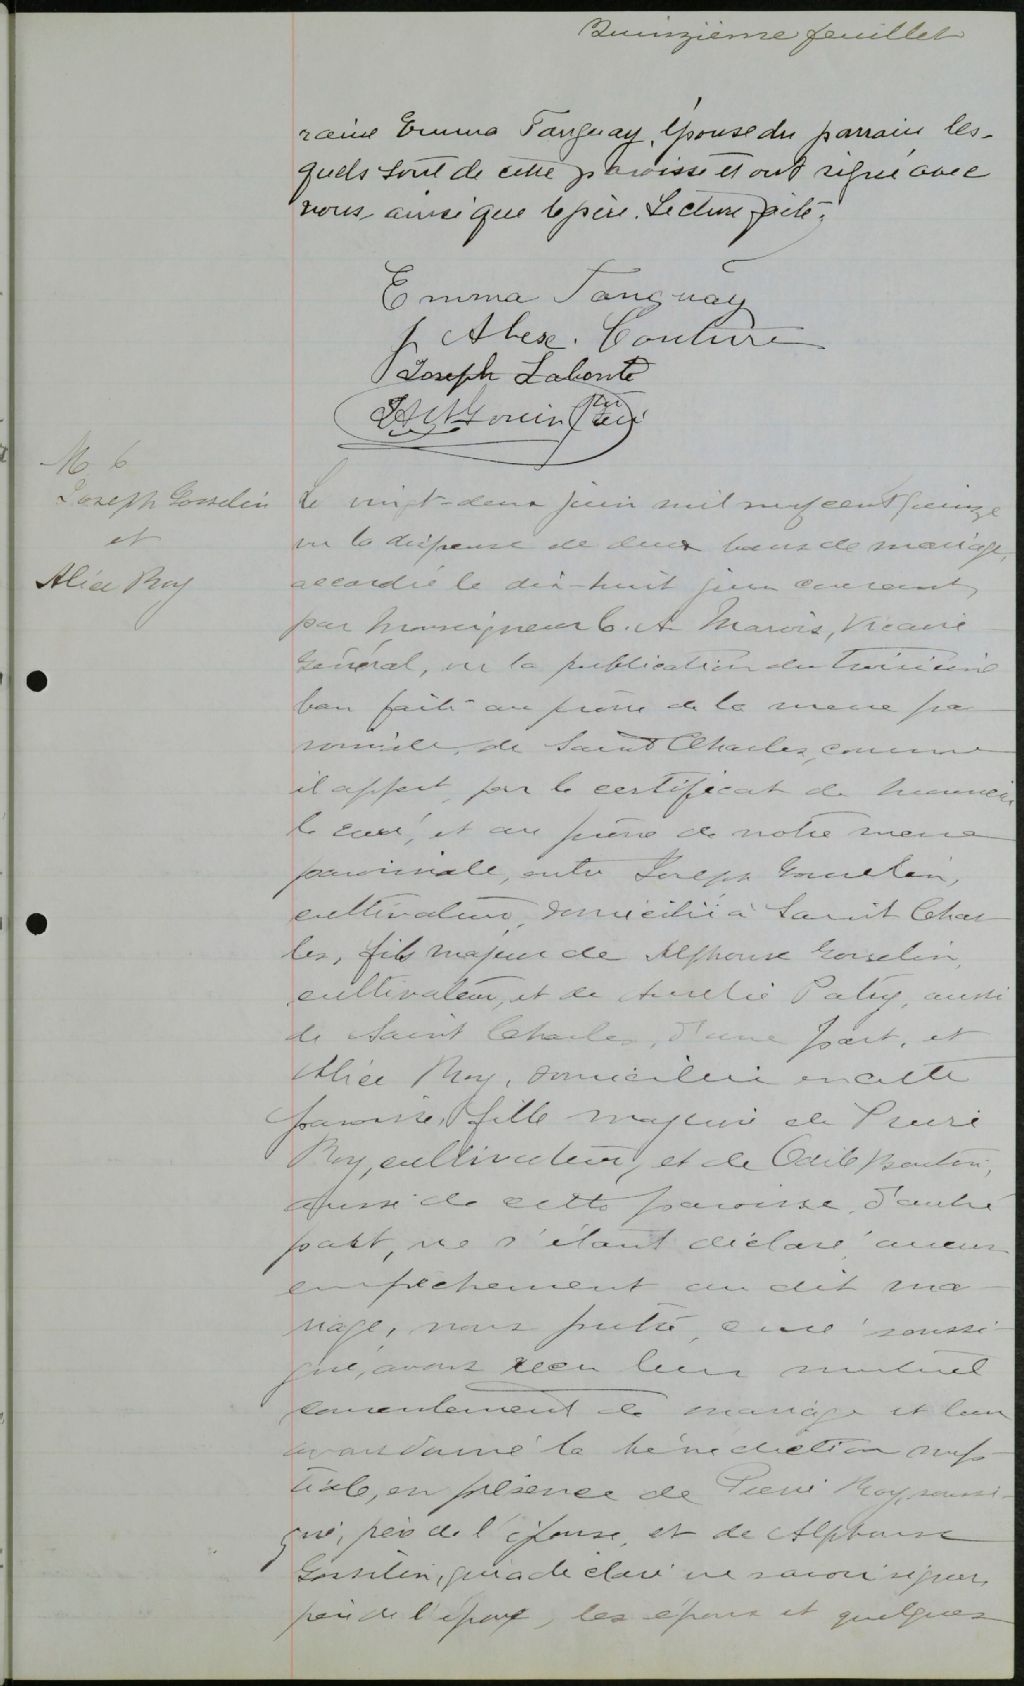 Quinzième feuillet
raine Emma Tanguay, épouse du parrain les-
quels sont de cette paroisse et ont signé avec
nous ainsi que le père. Lecture faite.
Emma Tanguay
J Alex. Couture
Joseph Labonté
Gouin Ptre Curé
M 6
Joseph Gosselin
et
Alice Roy
Le vingt-deux juin mil neuf cent quinze
vu la dispense de deux bans de mariage,
accordée le dix-huit juin courant
par Monseigneur C. A. Marois, Vicaire
Général, vu la publication du troisième
ban faite au prône de la messe pa-
roissiale de Saint Charles, comme
il appert par le certificat de Monsieur
le curé, et au prône de notre messe
paroissiale, entre Joseph Gosselin,
cultivateur, domicilié à Saint Char-
les, fils majeur de Alphonse Gosselin,
cultivateur, et de Aurélie Patry, aussi
de Saint Charles, d'une part, et
Alice Roy, domiciliée en cette
paroisse, fille majeure de Pierre
Roy, cultivateur, et de Odile
aussi de cette paroisse, d'autre
part, ne s'étant déclaré aucun
empêchement au dit ma-
riage, nous prêtre, curé soussi-
gné, avons reçu leur mutuel
consentement de mariage et leur
avons donné la bénédiction nup-
tiale, en présence de Pierre Roy, soussi-
gné, père de l'épouse, et de Alphonse
Gosselin, qui a déclaré ne savoir signer,
père de l'époux, les époux et quelques